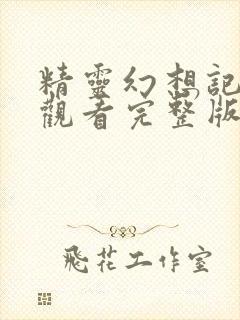 精靈幻想記
觀看完整版
飛花工作室